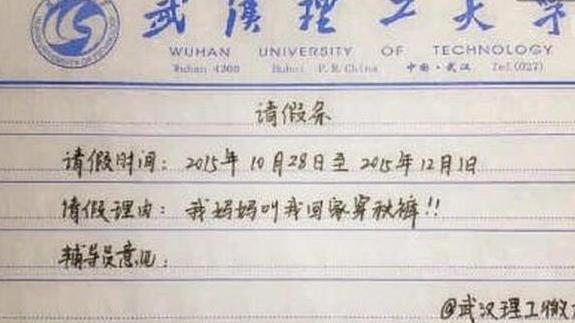 武漢理工大学
WUHAN UNIVERSITY OF TECHNOLOGY
Wuhan 4300 Hubei P.R.China 中国·武汉 Tel.(027)
请假条
请假时间：2015年10月28日至2015年12月1日
请假理由：我妈妈叫我回家穿秋裤!!
辅导员意见：
@武汉理工微